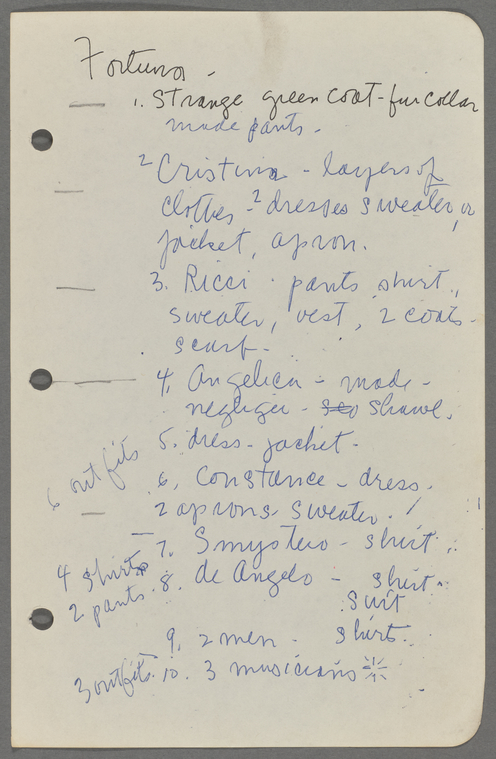 Fortuna -
1. Strange green coat - fur collar
made pants.
2 Cristina - layers of
clothes - 2 dresses sweater, or
jacket, apron.
3. Ricci - pants shirt,
sweater, vest, 2 coats -
scarf -
4. Angelica - made -
negligei - shawl.
5. dress - jacket -
6 outfits
6. Constance - dress.
2 aprons sweater. /
7. Smysterio - shirt
4 shirts
8. de Angelo - shirt
2 pants.
suit
9. 2 men - shirts.
3 outfits. 10. 3 musicians